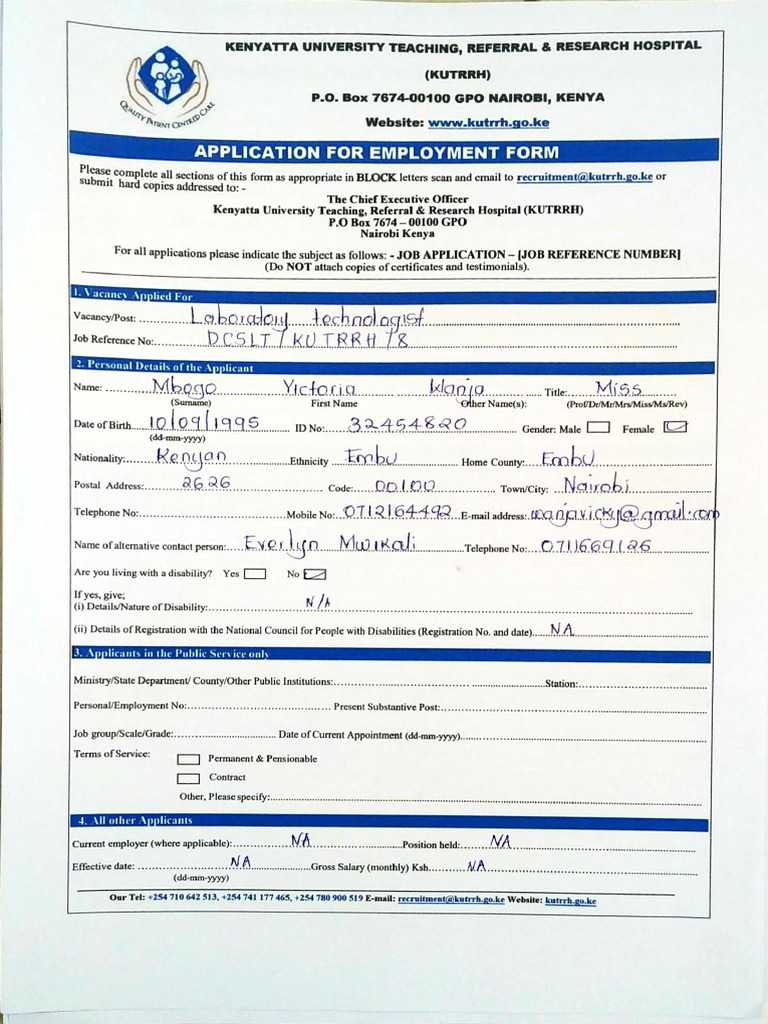 KENYATTA UNIVERSITY TEACHING, REFERRAL & RESEARCH HOSPITAL
(KUTRRH)
P.O. Box 7674-00100 GPO NAIROBI, KENYA
Website: www.kutrrh.go.ke
QUALITY PATIENT CENTRED CARE
APPLICATION FOR EMPLOYMENT FORM
Please complete all sections of this form as appropriate in BLOCK letters scan and email to recruitment@kutrrh.go.ke or
submit hard copies addressed to: -
The Chief Executive Officer
Kenyatta University Teaching, Referral & Research Hospital (KUTRRH)
P.O Box 7674 – 00100 GPO
Nairobi Kenya
For all applications please indicate the subject as follows: - JOB APPLICATION – [JOB REFERENCE NUMBER]
(Do NOT attach copies of certificates and testimonials).
1. Vacancy Applied For
Vacancy/Post: Laboratory technologist
Job Reference No: DCSLT/KUTRRH/8
2. Personal Details of the Applicant
Name: Mbogo Victoria Wanja Title: Miss
(Surname) First Name Other Name(s): (Prof/Dr/Mr/Mrs/Miss/Ms/Rev)
Date of Birth 10/09/1995 ID No: 32454820 Gender: Male Female
(dd-mm-yyyy)
Nationality: Kenyan Ethnicity Embu Home County: Embu
Postal Address: 2626 Code: 00100 Town/City: Nairobi
Telephone No: Mobile No: 0712164492 E-mail address: wanjavicky@gmail.com
Name of alternative contact person: Everlyn Mwikali Telephone No: 0711669126
Are you living with a disability? Yes No
If yes, give;
(i) Details/Nature of Disability: N/A
(ii) Details of Registration with the National Council for People with Disabilities (Registration No. and date) NA
3. Applicants in the Public Service only
Ministry/State Department/ County/Other Public Institutions: Station:
Personal/Employment No: Present Substantive Post:
Job group/Scale/Grade: Date of Current Appointment (dd-mm-yyyy)
Terms of Service: Permanent & Pensionable
Contract
Other, Please specify:
4. All other Applicants
Current employer (where applicable): NA Position held: NA
Effective date: NA Gross Salary (monthly) Ksh. NA
(dd-mm-yyyy)
Our Tel: +254 710 642 513, +254 741 177 465, +254 780 900 519 E-mail: recruitment@kutrrh.go.ke Website: kutrrh.go.ke